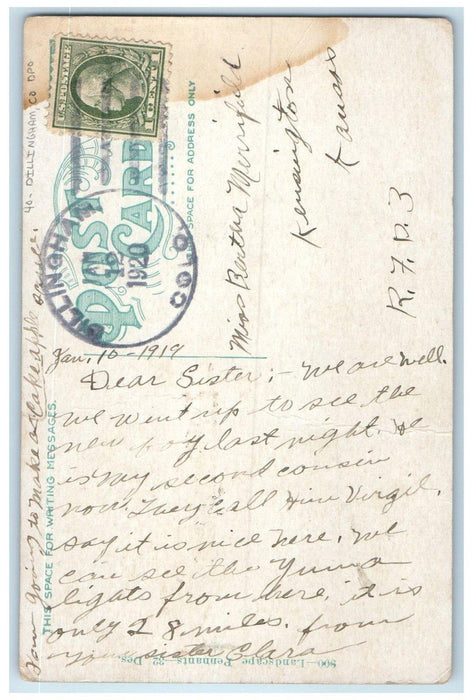 40-DILLINGHAM, CO DPO
U.S. POSTAGE
1 CENT
POST
CARD
SPACE FOR ADDRESS ONLY
DILLINGHAM
JAN
12
1920
COLO.
Miss Bertha Merrifield
Kensington
Kansas
R.F.D. 3
THIS SPACE FOR WRITING MESSAGES.
Jan. 10-1919
Dear Sister:- We are well.
we went up to see the
new boy last night. He
is my second cousin
now They call Him Virgil.
say it is nice here. We
can see the Yuma
lights from here. it is
only 28 miles. from
your sister Clara
I am going to make a cake apple sauce.
900—Landscape Pennants. 32 Des.